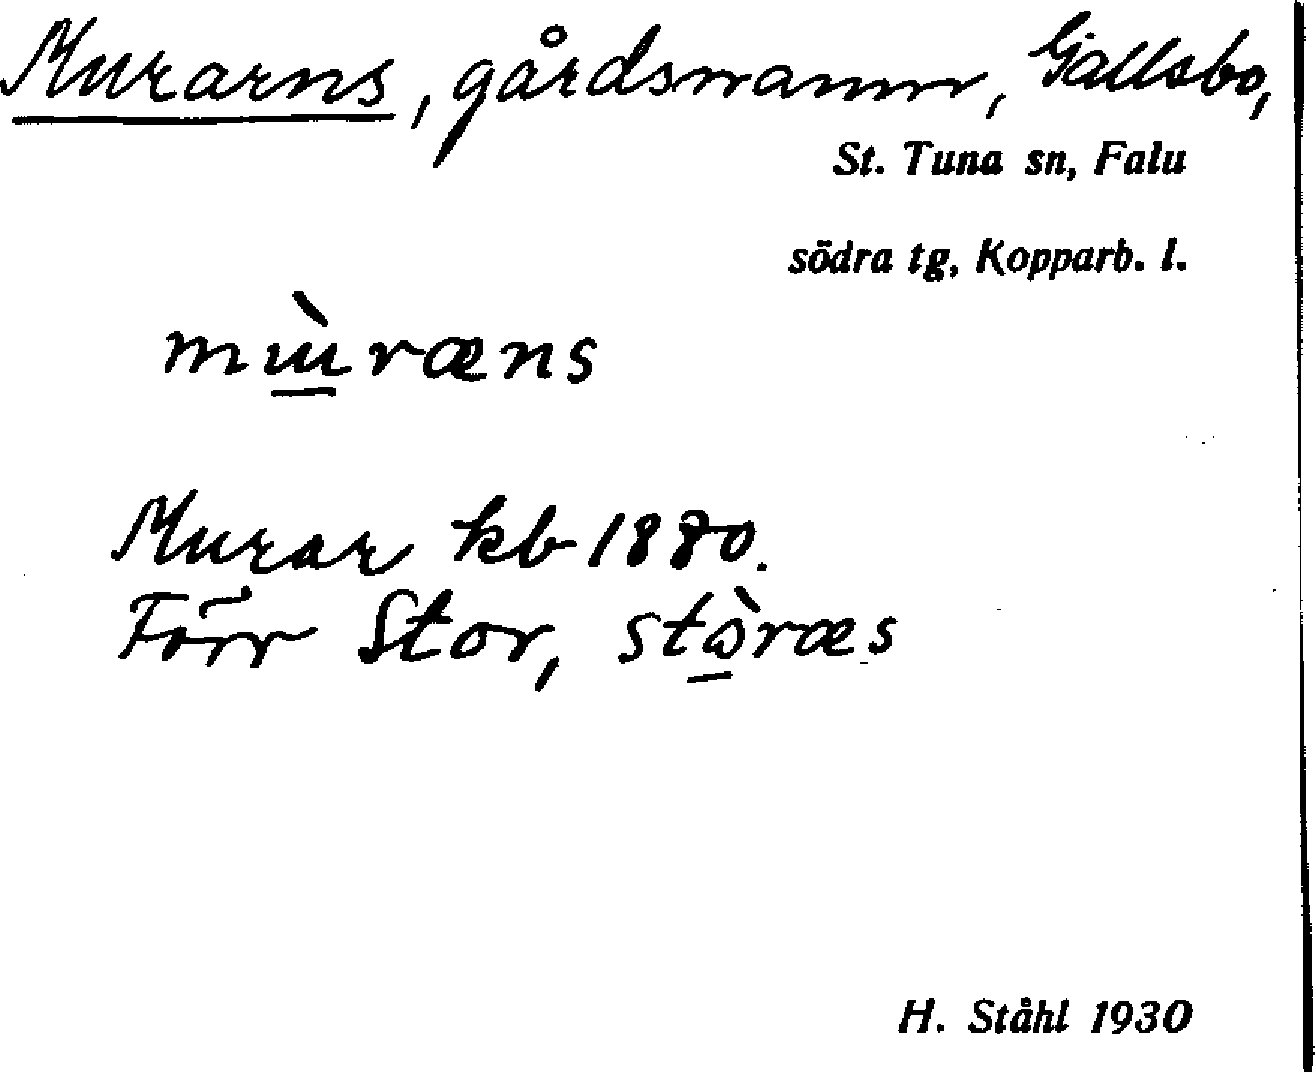 Murarns, gårdsnamn, Gallsbo,
St. Tuna sn, Falu
södra tg, Kopparb. l.
mɯ̀ræns
Murar kb 1880.
Förr Stor, stɷ̀ræs
H. Ståhl 1930